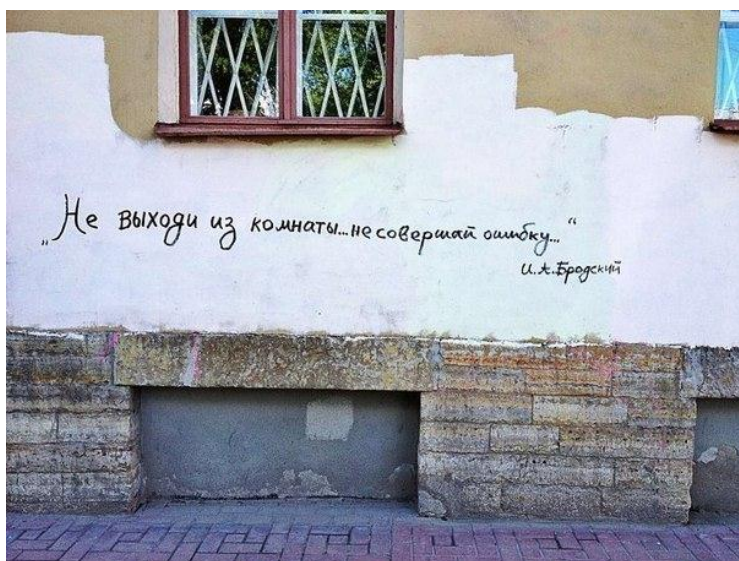 „Не выходи из комнаты...не совершай ошибку...“
И.А.Бродский